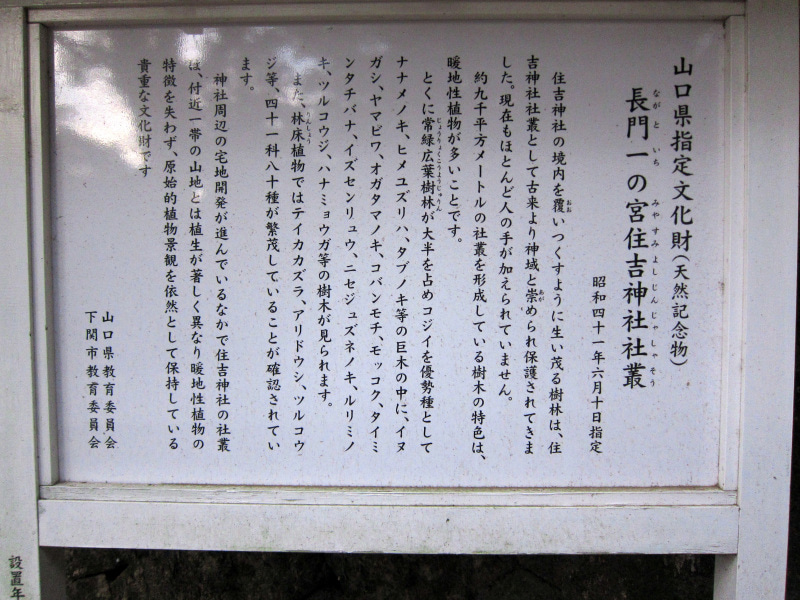 山口県指定文化財（天然記念物）
長門一の宮住吉神社社叢
ながと いち みやすみよしじんじゃしゃそう
昭和四十一年六月十日指定
住吉神社の境内を覆いつくすように生い茂る樹林は、住
おお
吉神社社叢として古来より神域と崇められ保護されてきま
あが
した。現在もほとんど人の手が加えられていません。
約九千平方メートルの社叢を形成している樹木の特色は、
暖地性植物が多いことです。
とくに常緑広葉樹林が大半を占めコジイを優勢種として
じょうりょくこうようじゅりん
ナナメノキ、ヒメユズリハ、タブノキ等の巨木の中に、イヌ
ガシ、ヤマビワ、オガタマノキ、コバンモチ、モッコク、タイミ
ンタチバナ、イズセンリュウ、ニセジュズネノキ、ルリミノ
キ、ツルコウジ、ハナミョウガ等の樹木が見られます。
また、林床植物ではテイカカズラ、アリドウシ、ツルコウ
りんしょう
ジ等、四十一科八十種が繁茂していることが確認されてい
ます。
神社周辺の宅地開発が進んでいるなかで住吉神社の社叢
は、付近一帯の山地とは植生が著しく異なり暖地性植物の
特徴を失わず、原始的植物景観を依然として保持している
貴重な文化財です
山口県教育委員会
下関市教育委員会
設置年